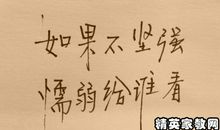 如果不坚强
懦弱给谁看
精英家教网